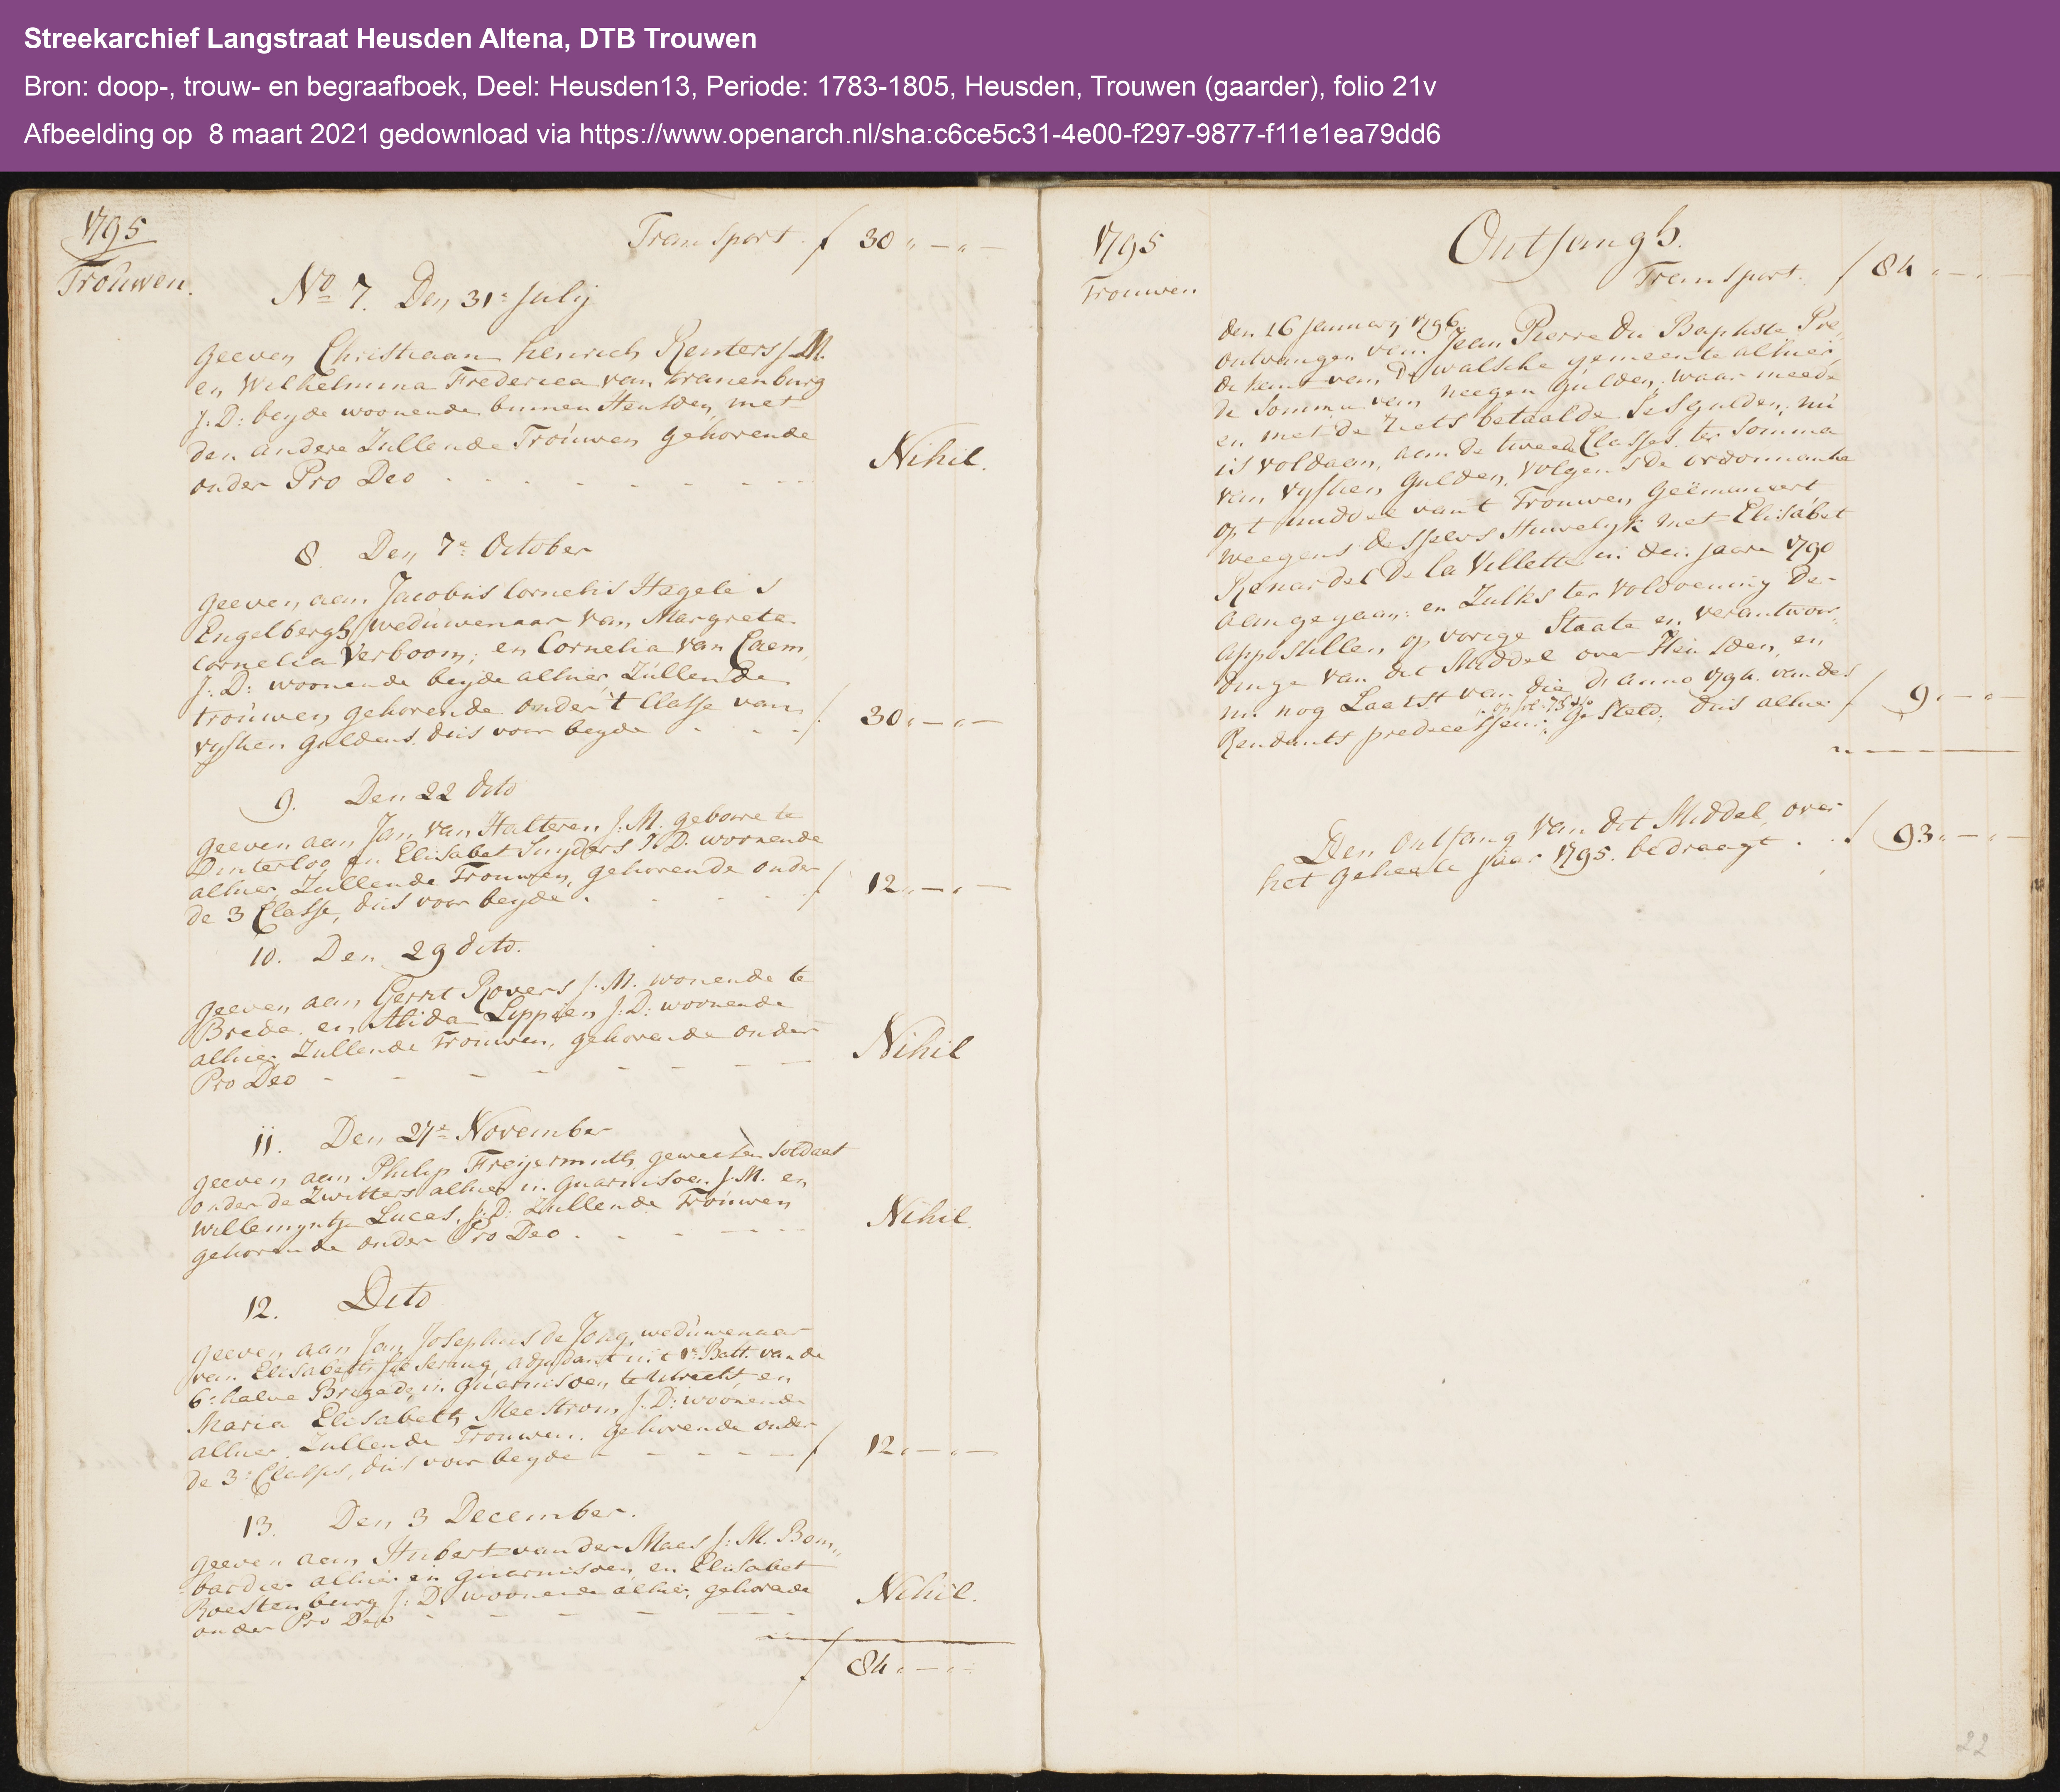 Streekarchief Langstraat Heusden Altena, DTB Trouwen
Bron: doop-, trouw- en begraafboek, Deel: Heusden13, Periode: 1783-1805, Heusden, Trouwen (gaarder), folio 21v
Afbeelding op 8 maart 2021 gedownload via https://www.openarch.nl/sha:c6ce5c31-4e00-f297-9877-f11e1ea79dd6
1795
Trouwen.
Transport. f 30 „ — „ —
No 7. Den 31e Julij
geeven Christiaan Henrich Renters J. M.
en Wilhelmina Frederica van Kranenburg
J: D: beyde woonende binnen Heusden, met
den andere Zullende Trouwen gehorende
onder Pro Deo - - - - - - Nihil.
8. Den 7e October
geeven aan Jacobus Cornelis Hagelis
Engelbergh weduwenaar van Margreta
Cornelia Verboom, en Cornelia van Caem,
J: D: woonende beyde alhier, Zullende
trouwen gehorende onder 't Classe van
vyftien guldens. dus voor beyde - - - f 30 „ — „ —
9. Den 22 dito
geeven aan Jan van Halteren J: M. gebore te
Dinterloo en Elisabet Snyders J: D. woonende
alhier Zullende Trouwen, gehorende onder
de 3 Classe, dus voor beyde. - - - f 12 „ — „ —
10. Den 29 dito.
geeven aan Gerrit Rovers J. M. wonende te
Breda, en Alida Lippien J: D: woonende
alhier Zullende Trouwen, gehorende onder
Pro Deo - - - - - - - Nihil
11. Den 27e November
geeven aan Philip Freijermuth geweesen soldaat
onder de Zwitters alhier in guarnisoen J: M. en
Willemyntje Lucas, J: D: Zullende Trouwen
gehorende onder Pro Deo. - - - - - Nihil.
12. Dito
geeven aan Jan Josephus de Jong, weduwenaar
van Elisabeth adjudant uit 1e Batt. van de
6e halve Brigade, in guarnisoen te Utrecht, en
Maria Elisabeth Meestrom, J: D: woonende
alhier, Zullende Trouwen. gehorende onder
de 3e Classes, dus voor beyde - - - - f 12 „ — „ —
13. Den 3 December.
geeven aan Hubert van der Maes J: M. Bom„
bardier alhier in guarnisoen, en Elisabet
Roestenburg J: D. woonende alhier, gehorende
onder Pro Deo - - - - - - Nihil.
f 84 „ — „ —
1795
Trouwen
Ontfangh.
Transport. f 84 „ — „ —
den 16 January 1796.
ontvangen van Jean Pierre du Baptiste Pre„
dikant van De Walsche gemeente alhier,
de somma van neegen gulden, waar meede
en met de reets betaalde ses gulden, nu
is voldaan, aan de tweede Classes. ter somma
van vyftien gulden, volgens de ordonnantie
op 't middel van 't Trouwen geëmaneert
weegens desselvs Huwelyk met Elisabet
Renardel De la Villette in den jaare 1790
aangegaan: en Zulks ter voldoening De-
appostillen op vorige Staate en verantwoor„
dinge van dit Middel over Heusden, en
nu nog Laatst van die de anno 1794. van des
op fol: 73
Rendants predecesseur: gesteld, dus alhier f 9 „ — „ —
Den Ontfang van dit Middel, over
het geheele Jaar 1795. bedraagt . . f 93 „ — „ —
22